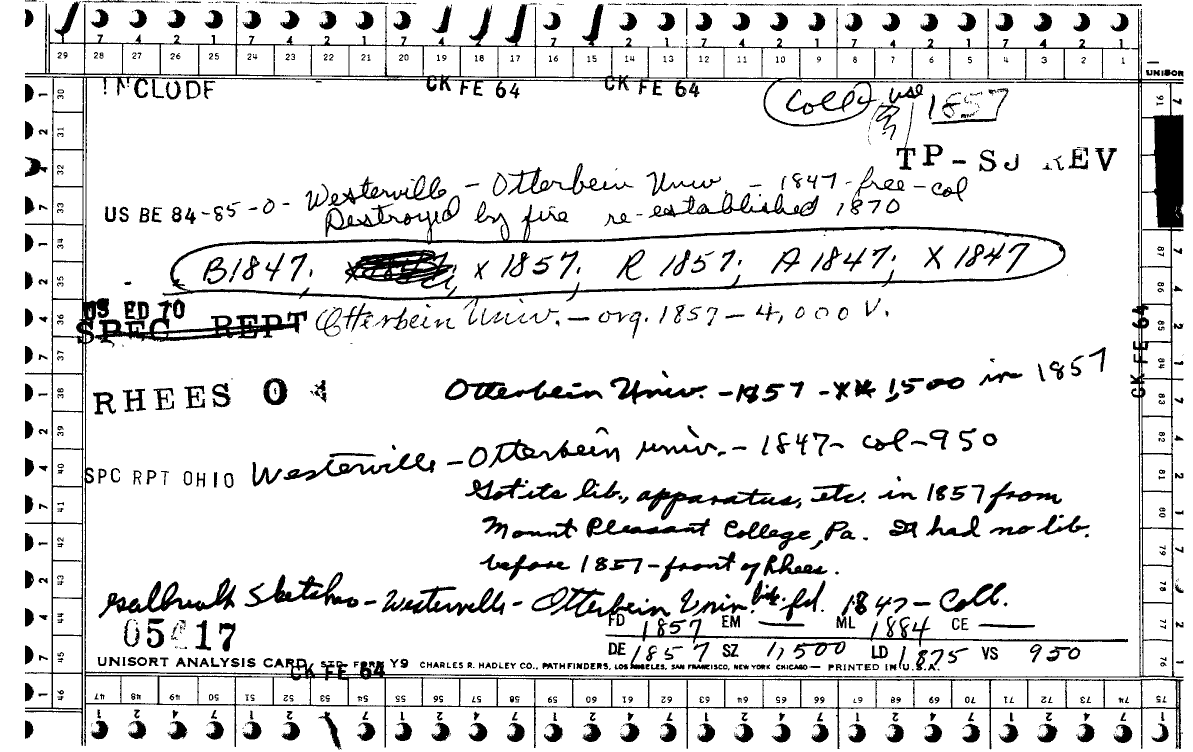 7 4 2 1 7 4 2 1 7 4 2 1 7 4 2 1 7 4 2 1 7 4 2 1
29 28 27 26 25 24 23 22 21 20 19 18 17 16 15 14 13 12 11 10 9 8 7 6 5 4 3 2 1
UNISOR
INCLUDE CK FE 64 CK FE 64 Coll use 1857
TP-SJ REV
US BE 84-85-0- Westerville - Otterbein Univ. - 1847-free-col
Destroyed by fire re-established 1870
B1847; x 1857; R 1857; A 1847; X 1847
US ED 70
SPEC REPT Otterbein Univ. - org. 1857 - 4,000 V.
CK FE 64
RHEES O 4 Otterbein Univ. -1857 -** 1,500 in 1857
SPC RPT OHIO Westerville - Otterbein univ. - 1847- col-950
Got its lib., apparatus, etc. in 1857 from
Mount Pleasant College, Pa. It had no lib.
before 1857-front of Rhees.
Galbreath Sketches - Westerville - Otterbein Univ. lib. fd. 1847 - Coll.
FD 1857 EM — ML 1884 CE —
DE 1857 SZ 1,500 LD 1875 VS 950
UNISORT ANALYSIS CARD STD. FORM Y9 CHARLES R. HADLEY CO., PATHFINDERS, LOS ANGELES, SAN FRANCISCO, NEW YORK CHICAGO — PRINTED IN U.S.A.
CK FE 64
30 31 32 33 34 35 36 37 38 39 40 41 42 43 44 45 46
47 48 49 50 51 52 53 54 55 56 57 58 59 60 61 62 63 64 65 66 67 68 69 70 71 72 73 74 75
76 77 78 79 80 81 82 83 84 85 86 87 91